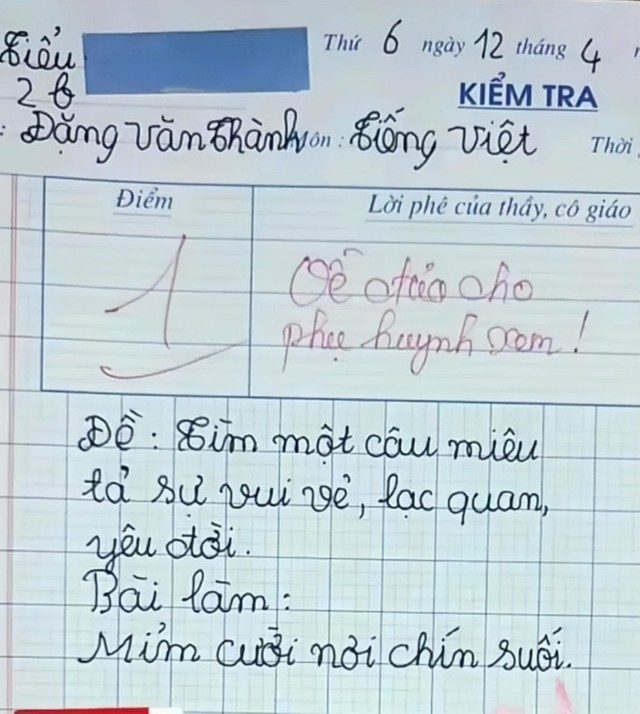 Tiểu
Thứ 6 ngày 12 tháng 4
2b
KIỂM TRA
: Đặng Văn Thành Môn : Tiếng Việt Thời
Điểm
Lời phê của thầy, cô giáo
1
Về đưa cho
phụ huynh xem!
Đề: Tìm một câu miêu
tả sự vui vẻ, lạc quan,
yêu đời.
Bài làm:
Mỉm cười nơi chín suối.